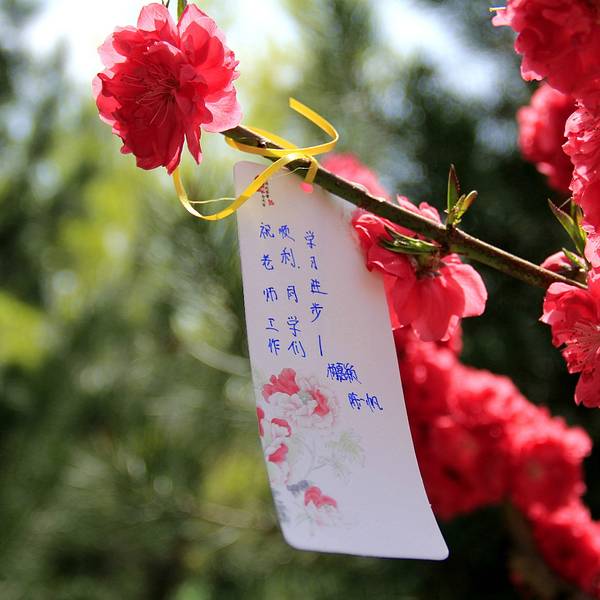 祝老师工作
顺利.同学们
学习进步!